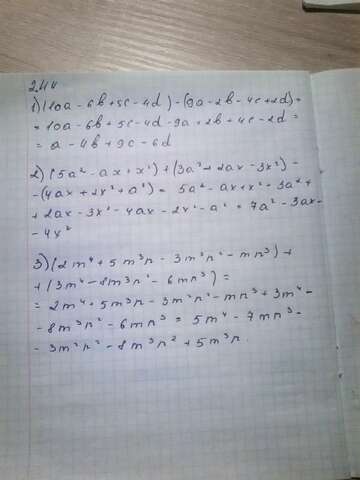 244
1) (10a - 6b + 5c - 4d) - (9a - 2b - 4c + 2d) =
= 10a - 6b + 5c - 4d - 9a + 2b + 4c - 2d =
= a - 4b + 9c - 6d
2) (5a² - ax + x²) + (3a² + 2ax - 3x²) -
- (4ax + 2x² + a²) = 5a² - ax + x² + 3a² +
+ 2ax - 3x² - 4ax - 2x² - a² = 7a² - 3ax -
- 4x²
3) (2m⁴ + 5m³n - 3m²n² - mn³) +
+ (3m⁴ - 8m³n² - 6mn³) =
= 2m⁴ + 5m³n - 3m²n² - mn³ + 3m⁴ -
- 8m³n² - 6mn³ = 5m⁴ - 7mn³ -
- 3m²n² - 8m³n² + 5m³n.